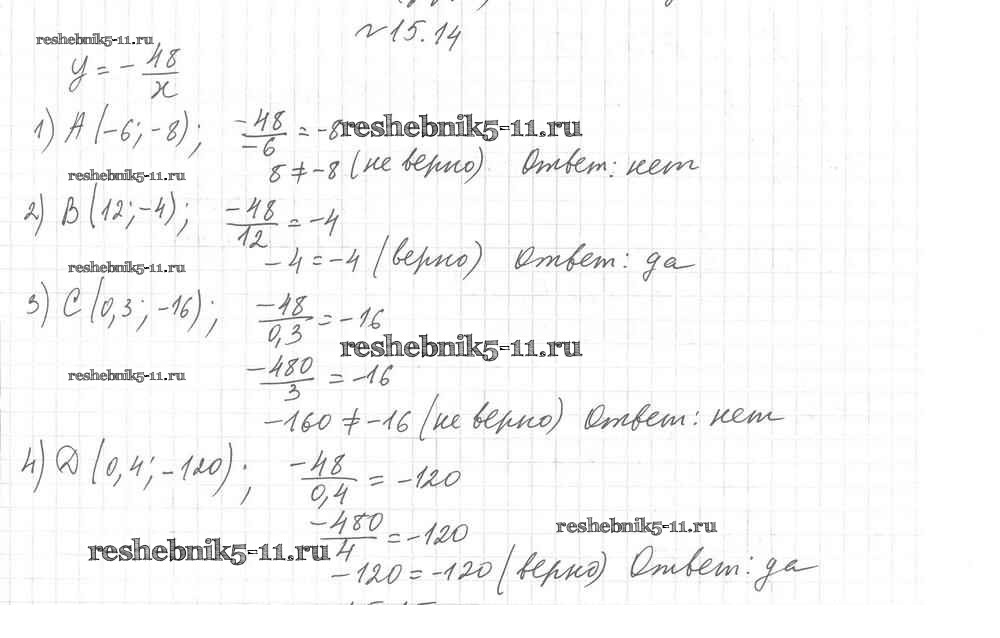 №15.14
reshebnik5-11.ru
y = - 48/x
1) A (-6; -8); -48/-6 = -8 reshebnik5-11.ru
8 ≠ -8 (не верно) Ответ: нет
reshebnik5-11.ru
2) B (12; -4); -48/12 = -4
-4 = -4 (верно) Ответ: да
reshebnik5-11.ru
3) C (0,3; -16); -48/0,3 = -16
reshebnik5-11.ru
reshebnik5-11.ru -480/3 = -16
-160 ≠ -16 (не верно) Ответ: нет
4) D (0,4; -120); -48/0,4 = -120
-480/4 = -120 reshebnik5-11.ru
reshebnik5-11.ru
-120 = -120 (верно) Ответ: да